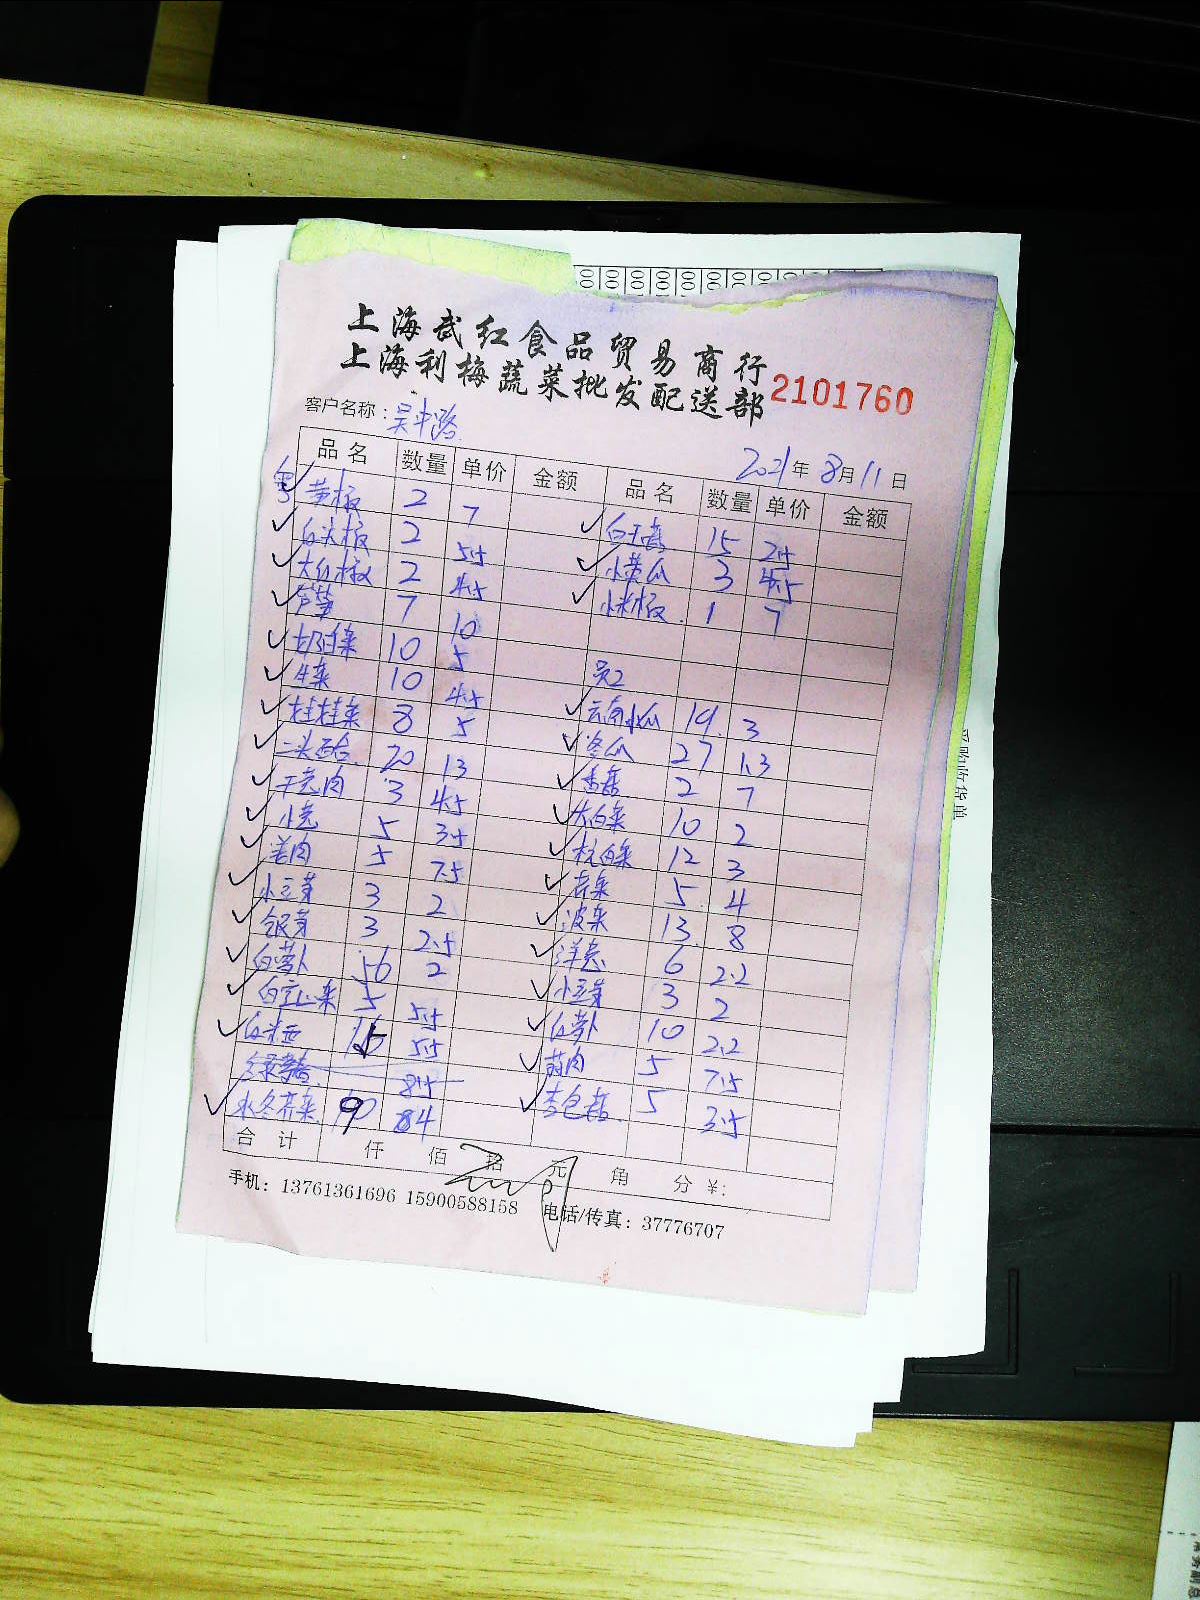 上海武红食品贸易商行
上海利梅蔬菜批发配送部 2101760
客户名称：吴中路
2021年8月11日
品名 数量 单价 金额 品名 数量 单价 金额
粤 黄椒 2 7
白玉菇 15 2.5
白尖椒 2 5.5
小黄瓜 3 4.5
大红椒 2 4.5
小米椒 1 7
芦笋 7 10
奶白菜 10 5
生菜 10 4.5
吴2
娃娃菜 8 5
云南小瓜 19 3
二头 20 13
冬瓜 27 1.3
干葱肉 3 4.5
香菇 2 7
小葱 5 3.5
大白菜 10 2
姜肉 5 7.5
杭白菜 12 3
小豆芽 3 2
5 4
银芽 3 2.5
波菜 13 8
白萝卜 56 2
洋葱 6 2.2
5 5.5
小豆芽 3 2
15 5.5
白萝卜 10 2.2
8.5
蒜肉 5 7.5
90 84
杏包菇 5 3.5
合计 仟 佰 拾 元 角 分 ¥:
手机：13761361696 15900588158 电话/传真：37776707
采购收货单